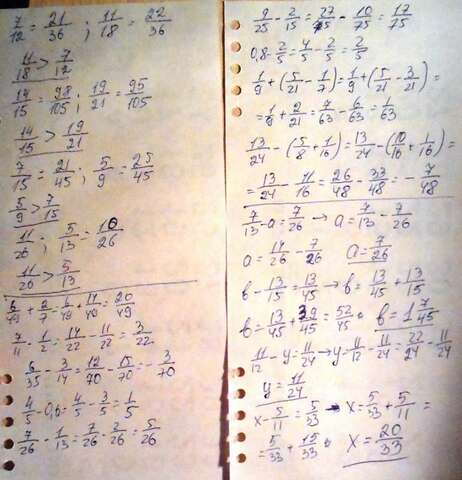 7/12 = 21/36 ; 11/18 = 22/36
11/18 > 7/12
14/15 = 98/105 ; 19/21 = 95/105
14/15 > 19/21
7/15 = 21/45 ; 5/9 = 25/45
5/9 > 7/15
11/26 ; 5/13 = 10/26
11/26 > 5/13
6/49 + 2/7 = 6/49 + 14/49 = 20/49
7/11 - 1/2 = 14/22 - 11/22 = 3/22
6/35 - 3/14 = 12/70 - 15/70 = - 3/70
4/5 - 0,6 = 4/5 - 3/5 = 1/5
7/26 - 1/13 = 7/26 - 2/26 = 5/26
9/25 - 2/15 = 27/75 - 10/75 = 17/75
0,8 - 2/5 = 4/5 - 2/5 = 2/5
1/9 + (5/21 - 1/7) = 1/9 + (5/21 - 3/21) =
= 1/9 + 2/21 = 7/63 - 6/63 = 1/63
13/24 - (5/8 + 1/16) = 13/24 - (10/16 + 1/16) =
= 13/24 - 11/16 = 26/48 - 33/48 = - 7/48
7/13 - a = 7/26 → a = 7/13 - 7/26
a = 14/26 - 7/26 a = 7/26
b - 13/15 = 13/45 → b = 13/45 + 13/15
b = 13/45 + 39/45 = 52/45 b = 1 7/45
11/12 - y = 11/24 → y = 11/12 - 11/24 = 22/24 - 11/24
y = 11/24
x - 5/11 = 5/33 → x = 5/33 + 5/11 =
= 5/33 + 15/33 x = 20/33